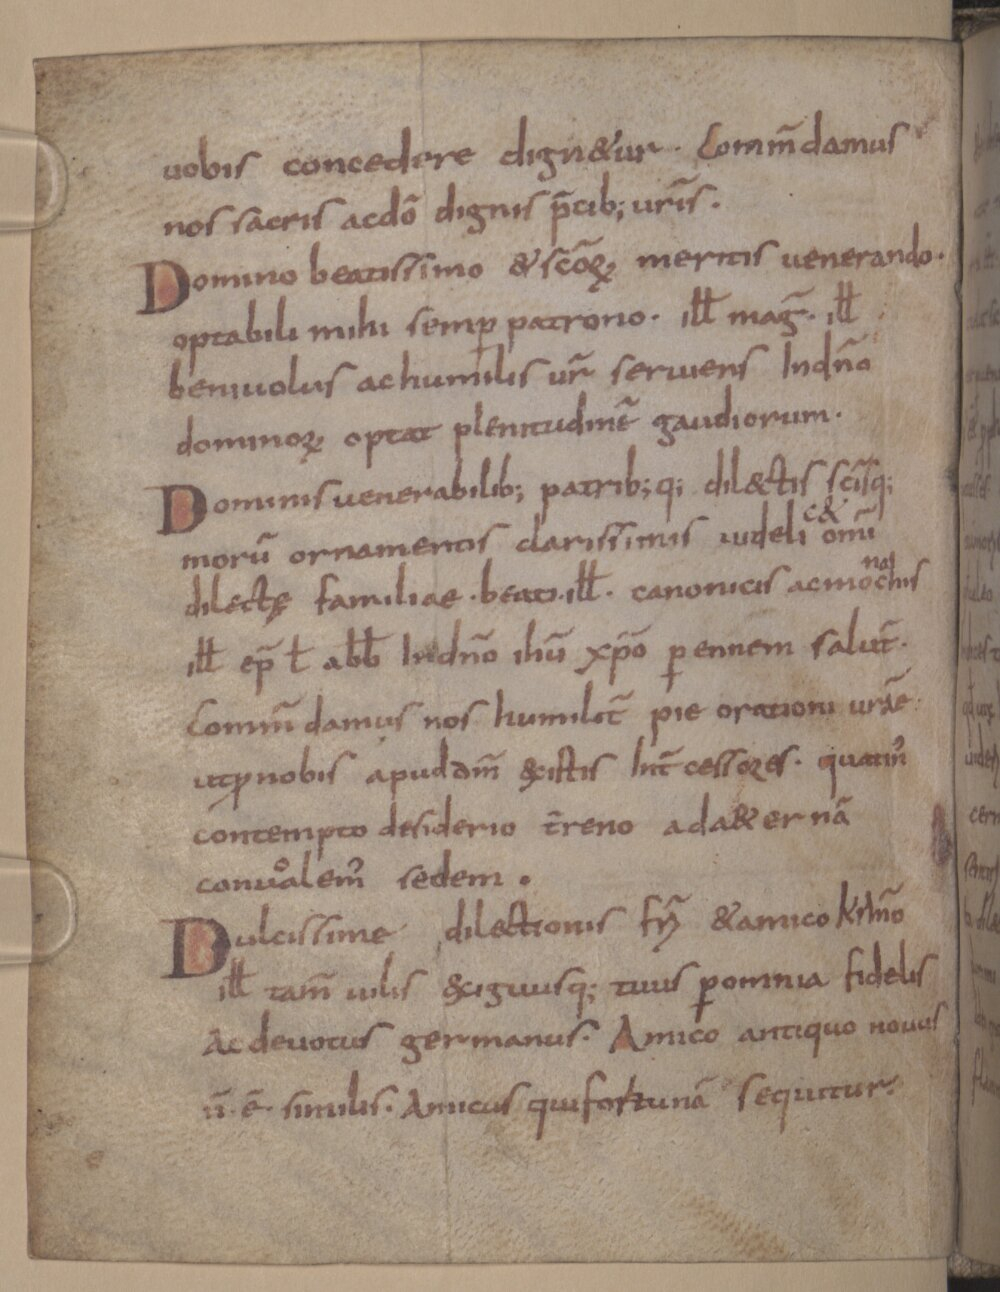 uobis concedere dign&ur. Com̄mdamus
nos sacris acdō dignis p̄cib; ur̄is.
Domino beatissimo & scōꝝ meritis uenerando.
optabili mihi semp̱ patrono. ill̄ maḡ. ill̄
beniuolus ac humilis ur̄ seruiens Indn̄o
dominoꝝ optat plenitudinē gaudiorum.
Dominis uenerabilib; patrib;q; dil&tis sc̄isq;
morū ornamentis clarissimis uidelic& omī
dilectę familiae. beati. ill̄. canonicis ac monachis
ill̄ ep̄ ł abb̄ Indn̄o ihū xp̄o ꝑennem salut̄.
Com̄mdamus nos humilit̄ pie orationi urāe.
ut ꝓ nobis apud dm̄ &istis Int̄cessores. quatin᷒
contempto desiderio t̄reno ad a&ernā
conuolem᷒ sedem.
Dulcissime dilectionis fr̄i & amico
ill̄ tam̄ uilis &iguusq; tuus ꝑ omnia fidelis
Ac deuotus germanus. Amico antiquo nouus
n̄. ē. similis. Amicus qui fortunā sequitur.